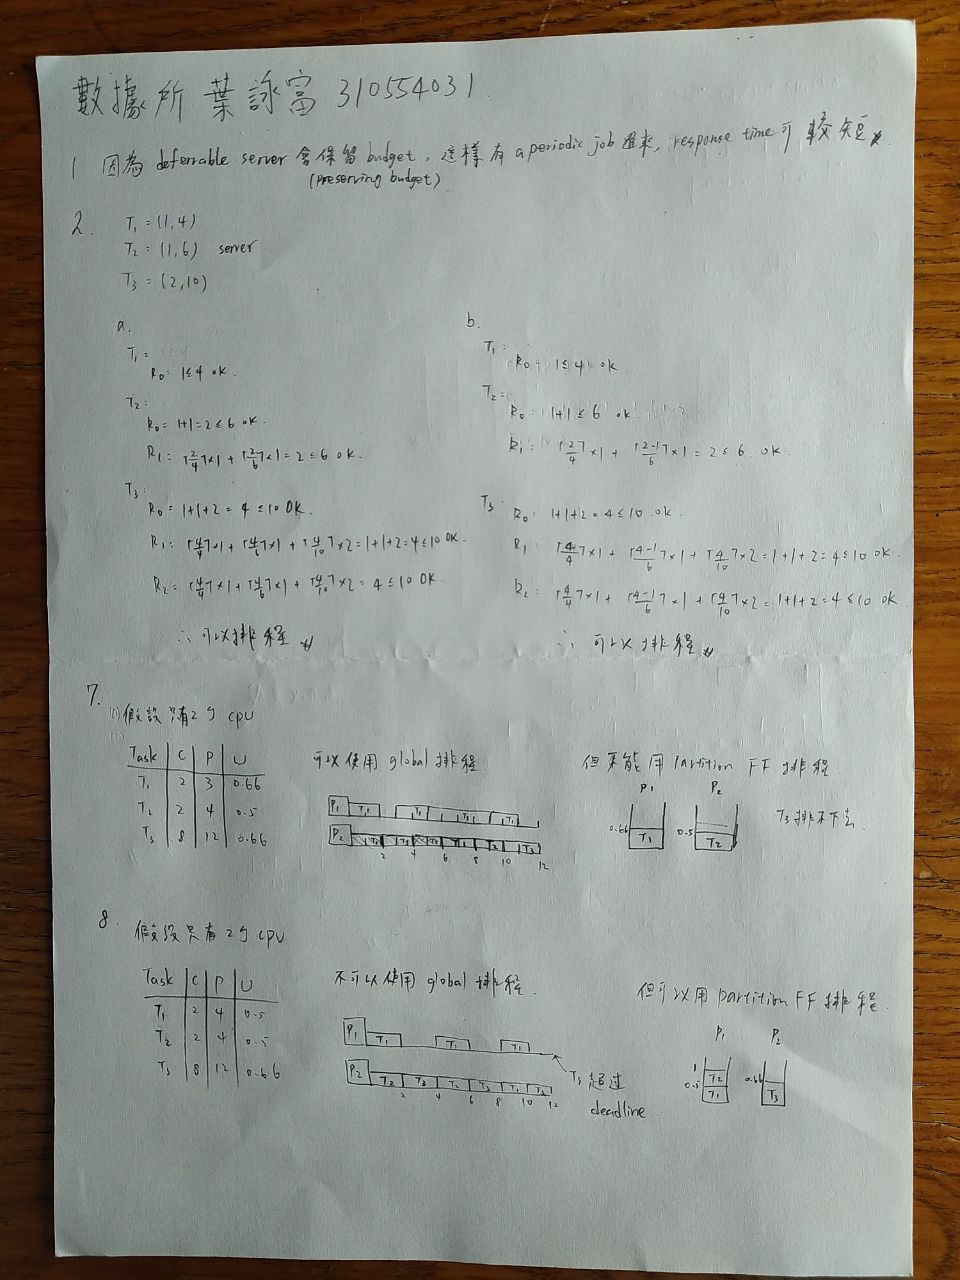 數據所 葉詠富 310554031
1 因為 deferrable server 會保留 budget, 這樣有 aperiodic job 進來, response time 可 較短
(preserving budget)
2. T₁ = (1,4)
T₂ = (1,6) server
T₃ = (2,10)
a.
T₁ =
R₀ = 1≤4 OK.
T₂:
R₀ = 1+1=2≤6 ok.
R₁ = ⌈2/4⌉×1 + ⌈2/6⌉×1 = 2≤6 OK.
T₃:
R₀ = 1+1+2 = 4≤10 OK.
R₁ = ⌈4/4⌉×1 + ⌈4/6⌉×1 + ⌈4/10⌉×2 = 1+1+2=4≤10 OK.
R₂ = ⌈4/4⌉×1 + ⌈4/6⌉×1 + ⌈4/10⌉×2 = 4≤10 OK.
∴ 可以排程
b.
T₁ =
R₀ = 1≤4 OK
T₂ =
R₀ = 1+1≤6 ok
R₁ = ⌈2/4⌉×1 + ⌈2-1/6⌉×1 = 2≤6. OK.
T₃:
R₀ = 1+1+2=4≤10 .OK.
R₁ = ⌈4/4⌉×1 + ⌈4-1/6⌉×1 + ⌈4/10⌉×2 = 1+1+2=4≤10 OK.
R₂ = ⌈4/4⌉×1 + ⌈4-1/6⌉×1 + ⌈4/10⌉×2 = 1+1+2=4≤10 OK
∴ 可以排程
7.
假設只有2个 CPU
Task C P U
T₁ 2 3 0.66
T₂ 2 4 0.5
T₃ 8 12 0.66
可以使用 global 排程.
P₁ T₁ T₁ T₃ T₁
P₂ T₂ T₃ T₂ T₁ T₃ T₂ T₃
2 4 6 8 10 12
但不能用 Partition FF 排程
P₁ P₂
0.66 T₁ 0.5 T₂
T₃ 排不下去.
8.
假設只有2个 CPU
Task C P U
T₁ 2 4 0.5
T₂ 2 4 0.5
T₃ 8 12 0.66
不可以使用 global 排程.
P₁ T₁ T₁ T₁
P₂ T₂ T₃ T₂ T₃ T₂ T₃
2 4 6 8 10 12
T₃ 超過
deadline
但可以用 partition FF 排程.
P₁ P₂
1 T₂
0.5 T₁
0.66 T₃